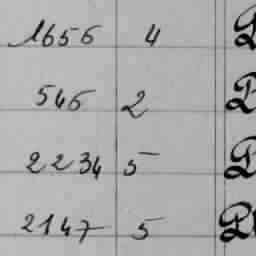 1656 4
546 2
2234 5
2147 5